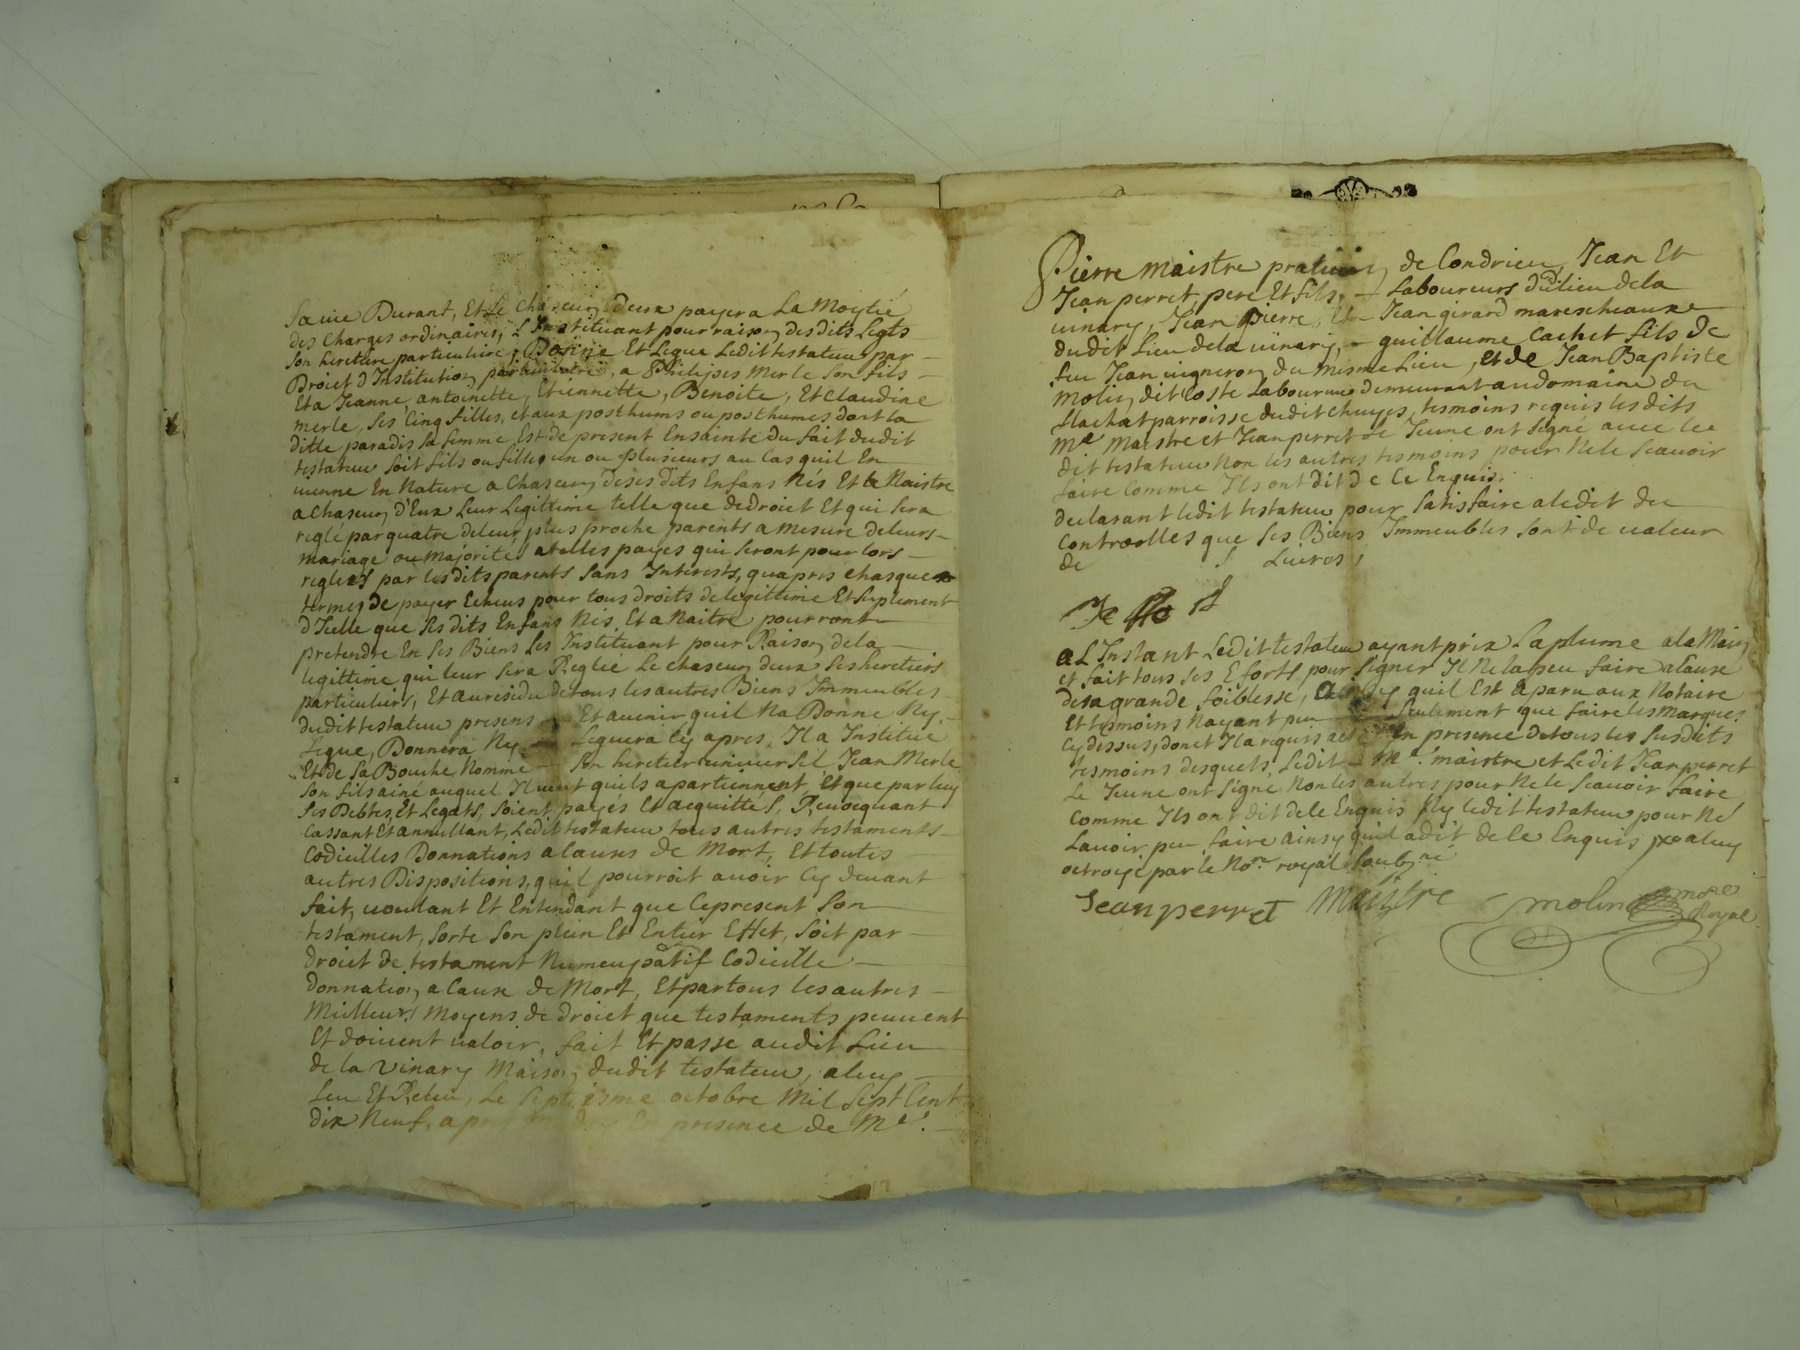 sa vie Durant, Et Le Chascun d'eux payera La Moytié
des Charges ordinaires, L'Instituant pour raison desdits Legts
son heretiere particuliere, Donne Et Legue Ledit testateur par
Droict d'Institution particuliere, a Philipes Merle son fils
Et a Jeanne, antoinette, Etiennette, Benoite, Et Claudine
merle, ses Cinq filles, et aux posthums ou posthumes dont la
ditte paradis sa femme Est de present Ensainte du fait dudit
testateur soit fils ou filles un ou plusieurs au Cas quil En
vienne En Nature a Chascun desesdits Enfans Nés Et a Naistre
a Chascun d'Eux Leur Legittime telle que de droict Et qui sera
reglé par quatre deleur plus proche parents a mesure deleurs
mariage ou majorités a telles payes qui seront pour lors
reglées par lesdits parents sans Interests, quapres chasque
termes de payer Echeus pour tous droits de legittime Et suplement
d'Icelle que sesdits Enfans Nés Et a Naitre pourront
pretendre En ses Biens Les Instituant pour Raison dela
legittime qui leur sera Reglée Le chascun deux ses heretiers
particuliers, Et au residu detous les autres Biens Immeubles
dudit testateur presens Et auenir quil Na Donné Ny
Legué, Donnera Ny Leguera Cy apres, Il a Institué
Et de sa Bouche Nommé son heretier universel Jean Merle
son fils ainé auquel Il veut quils apartiennent, Et que par luy
ses Debtes, Et Legats, soient payés Et acquittés, Revocquant
Cassant Et annullant, Ledit testateur tous autres testaments
Codicilles Donnations a causes de Mort, Et toutes
autres Dispositions, quil pourroit avoir Cy devant
fait, voulant Et Entendant que Cepresent son
testament, sorte son plein Et Entier Effet, soit par
droict de testament Numcupatif Codicille
donnation a Cause de Mort, Et par tous les autres
Meilleurs Moyens de droict que testaments peuvent
Et doivent valoir, fait Et passé audit Lieu
de la Vinary Maison dudit testateur, a luy
Leu Et Releu, Le Septiesme octobre Mil Sept Cent
dix Neuf, apres En presence de Me.
Pierre Maistre praticien de Condrieu, Jean Et
Jean perret, pere Et fils, Laboureurs dudit lieu dela
vinary, Jean Pierre, Jean girard mareschaux
dudit Lieu dela vinary, guillaume Cachet fils de
feu Jean vigneron du Mesme Lieu, et de Jean Baptiste
molin dit Coste Laboureur demeurant au domaine du
flachat parroisse dudit chuyes, tesmoins requis lesdits
Me Maistre et Jean perret le Jeune ont signé avec le
dit testateur Non les autres tesmoins pour Nele scauoir
faire Comme Ils ont dit de Ce Enquis.
declarant ledit testateur pour satisfaire aledit de
Controolles que ses Biens Immeubles sont de valeur
de Livres,
a L'Instant Ledit testateur ayant prix La plume a la Main
et fait tous ses Eforts pour signer Il Ne la peu faire a Cause
desa grande foiblesse, quil Est aparu aux Notaire
Et tesmoins Nayant peu seulement que faire les marques
Cy dessus, donct Il a requis acte En presence detous les susdits
tesmoins desquels, Ledit Me. maistre et Ledit Jean perret
Le Jeune ont signé Non les autres pour Nele scavoir faire
Comme Ils ont dit dele Enquis Ny ledit testateur pour Ne
Lavoir peu faire ainsy quil a dit de Ce Enquis a luy
octroyé par le Nore. royal soubné
Jean perret Maistre molin nore
Royal